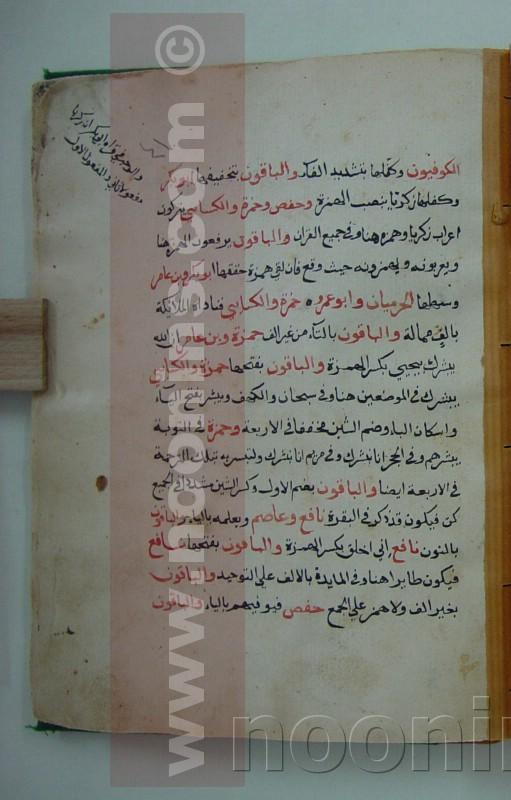 الكوفيون وكفلها بتشديد الفاء والباقون بتخفيفها ابوبكر
وكفلها زكريا بنصب الهمزة وحفص وحمزة والكسائي يتركون
اعراب زكريا وهمزه هنا وفي جميع القران والباقون يرفعون الهمزة هنا
ويعربونه ويهمزونه حيث وقع فان لقي همزة حققها ابوبكر وبن عامر
وسهلها الحرميان وابوعمرو حمزة والكسائي فناداه الملائكة
بالف ممالة والباقون بالتاء من غير الف حمزة وبن عامر ان الله
يبشرك بيحيي بكسر الهمزة والباقون بفتحها حمزة والكسائي
يبشرك في الموضعين هنا وفي سبحان والكهف ويبشر بفتح الياء
واسكان الباء وضم الشين مخففا في الاربعة وحمزة في التوبة
يبشرهم وفي الحجر انا نبشرك وفي مريم انا نبشرك ولتبشر به تلك الترجمة
في الاربعة ايضا والباقون بضم الاول وكسر الشين مشددا في الجمع
كن فيكون قد ذكر في البقرة نافع وعاصم ويعلمه بالياء والباقون
بالنون نافع اني اخلق بكسر الهمزة والباقون بفتحها نافع
فيكون طايرا هنا وفي المايدة بالالف على التوحيد والباقون
بغير الف ولا همز على الجمع حفص فيوفيهم بالياء والباقون
www.noonims.com ©
noonin